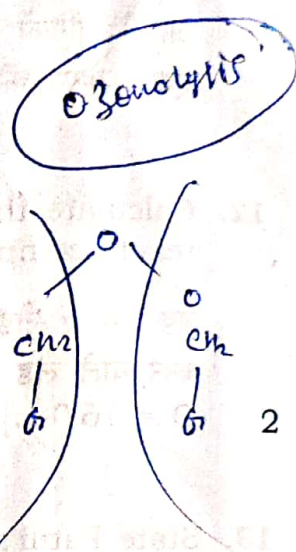 Ozonolysis
O
O
CH2 CH2
O O 2